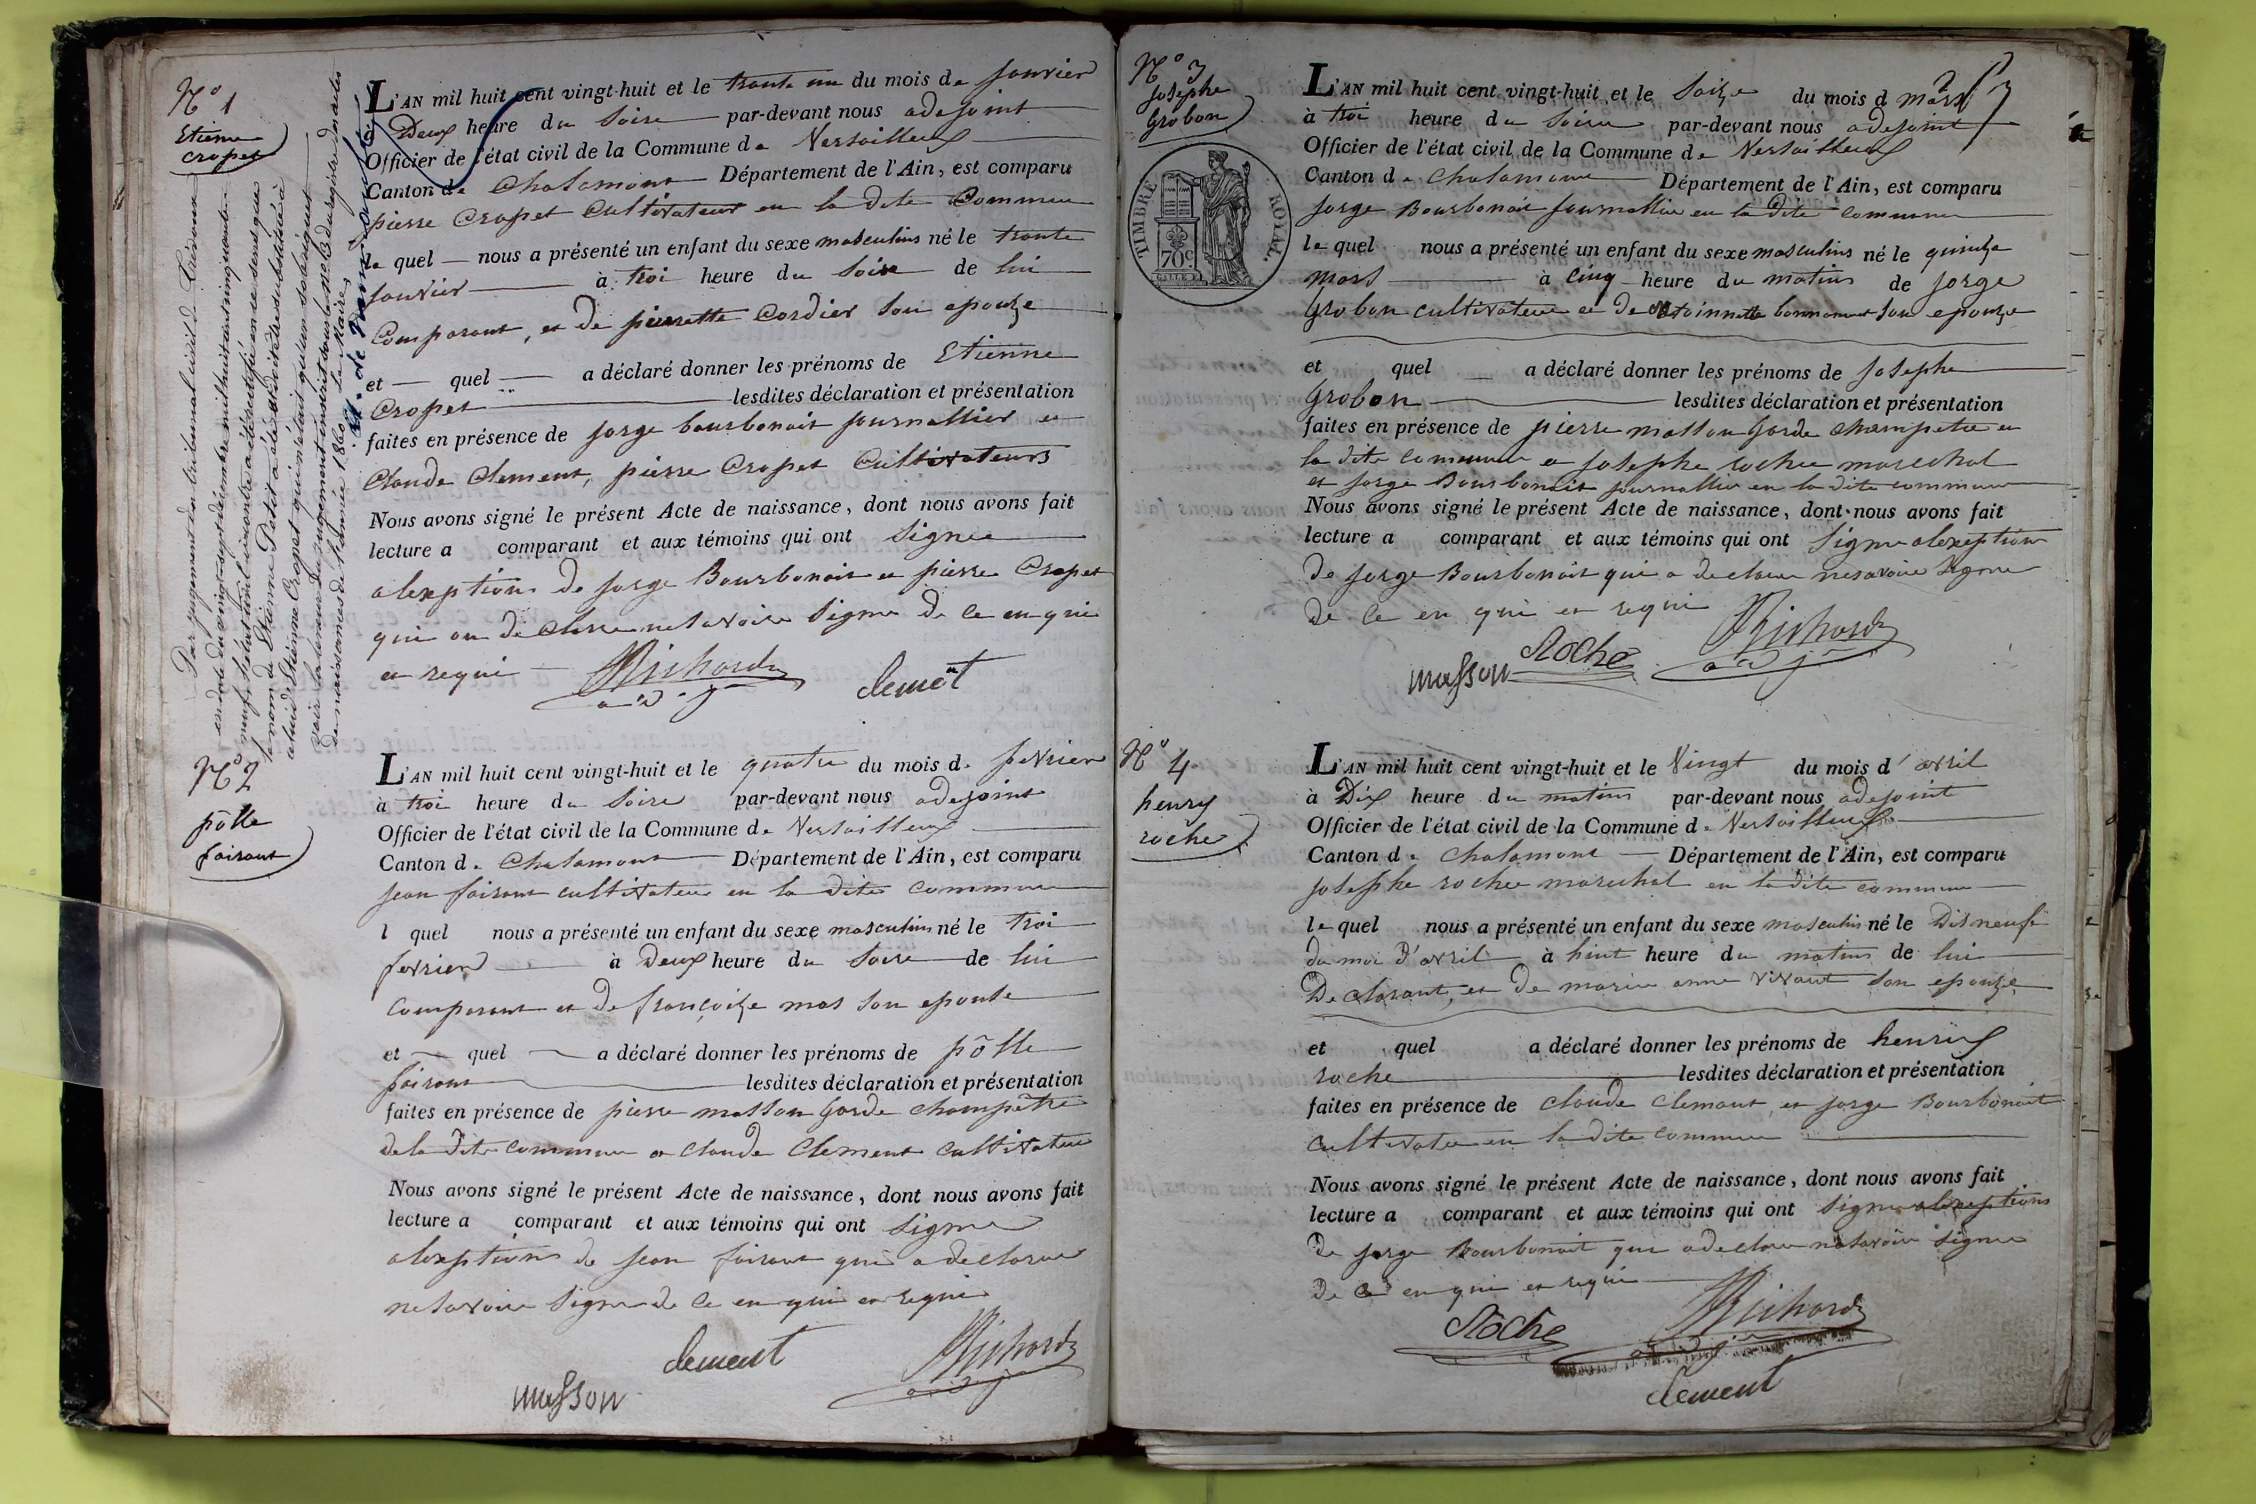 N° 1
Etienne
Cropet
Par jugement du tribunal civil de Trévoux
en date du vingt-sept décembre mil huit cent cinquante-
neuf, à été rectifié en ce sens que
le nom de Etienne Petit a été substitué à
celui d'Etienne Cropet
de naissances de l'année 1860. Le Maire,
L'AN mil huit cent vingt-huit et le trante un du mois de janvier
à Deux heure du Soire par-devant nous adejoint
Officier de l'état civil de la Commune de Versailleux
Canton de Chalamont Département de l'Ain, est comparu
pierre Cropet Cultivateur en la dite Commune
le quel nous a présenté un enfant du sexe masculins né le trante
janvier à troi heure du Soire de lui
Comparant, et de pierrette Cordier Son epouze
et quel a déclaré donner les prénoms de Etienne
Cropet lesdites déclaration et présentation
faites en présence de jorge bourbonoit journallier et
Claude Clement, pierre Cropet Cultivateurs
Nous avons signé le présent Acte de naissance, dont nous avons fait
lecture a comparant et aux témoins qui ont Signee
alexption de jorge Bourbonoit et pierre Cropet
qui on declare ne Savoire Signe de ce en qui
et requi
Richard
adj
clemet
N° 2
pôlle
foirant
L'AN mil huit cent vingt-huit et le quatre du mois de fevrier
à troi heure du Soire par-devant nous adejoint
Officier de l'état civil de la Commune de Versailleux
Canton de Chalamont Département de l'Ain, est comparu
jean foirant cultivateur en la dite commune
l quel nous a présenté un enfant du sexe masculins né le troi
fevrier à Deux heure du Soire de lui
comparant et de françoize mas Son epouse
et quel a déclaré donner les prénoms de pôlle
foirant lesdites déclaration et présentation
faites en présence de pierre masson garde champêtre
de la dite commune et claude Clement cultivateur
Nous avons signé le présent Acte de naissance, dont nous avons fait
lecture a comparant et aux témoins qui ont Signe
alexption de jean foirant qui a declarue
ne Savoire Signe de ce en qui et requi
clement
Richard
masson
adj
N° 3
Josephe
Grobon
TIMBRE ROYAL
70c
L'AN mil huit cent vingt-huit et le Saize du mois d mars
à troi heure du Soire par-devant nous adejoint
Officier de l'état civil de la Commune de Versailleux
Canton de Chalamont Département de l'Ain, est comparu
jorge Bourbonoit journallier en la dite commune
le quel nous a présenté un enfant du sexe masculins né le quinze
mars à cinq heure du matins de jorge
Grobon cultivateur et de antoinnette bonnamour Son epouze
et quel a déclaré donner les prénoms de Josephe
Grobon lesdites déclaration et présentation
faites en présence de pierre masson Garde champetre en
la dite commune et Josephe rochee marechal
et jorge Bourbonoit journallier en la dite commune
Nous avons signé le présent Acte de naissance, dont nous avons fait
lecture a comparant et aux témoins qui ont Signe alexeption
de jorge Bourbonoit qui a declare ne savoire Signe
de ce en qui et requi
Richard
Roche
masson
adj
N° 4
henry
roche
L'AN mil huit cent vingt-huit et le Vingt du mois d'avril
à Dix heure du matins par-devant nous adejoint
Officier de l'état civil de la Commune de Versailleux
Canton de Chalamont Département de l'Ain, est comparu
josephe rochee marechal en la dite commune
le quel nous a présenté un enfant du sexe masculin né le Disneufe
du moi d'avril à huit heure du matins de lui
Declarant, et De marie anne Vivant Son epouze
et quel a déclaré donner les prénoms de henry
roche lesdites déclaration et présentation
faites en présence de claude Clemant et jorge Bourbonoit
cultivateur en la dite commune
Nous avons signé le présent Acte de naissance, dont nous avons fait
lecture a comparant et aux témoins qui ont Signe alexeptions
de jorge Bourbonoit qui a declare ne savoire Signe
de ce en qui et requi
Roche
Richard
adj
clement